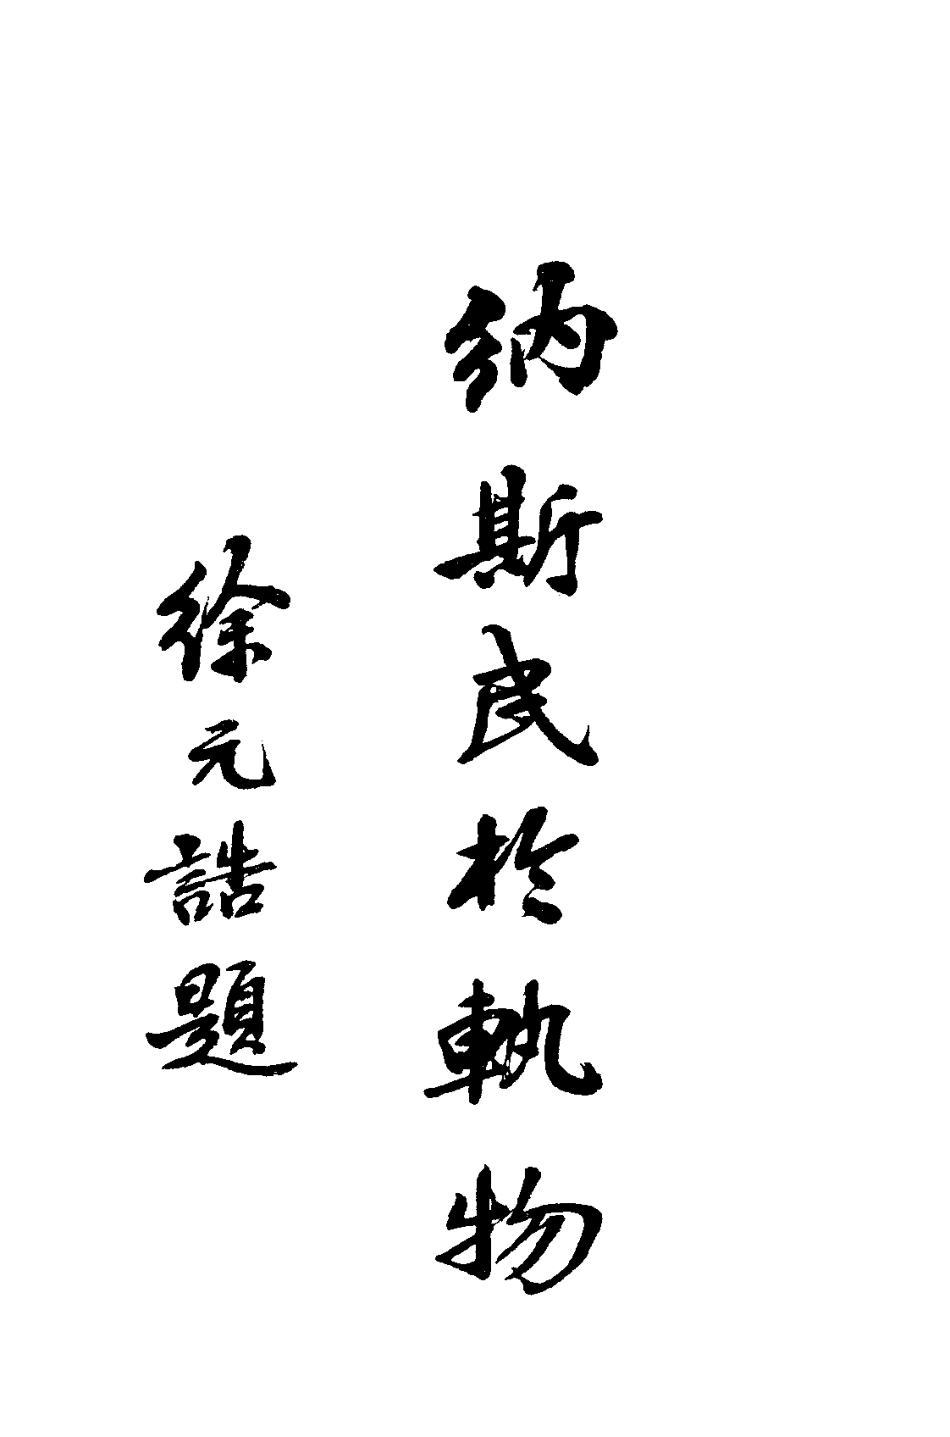 納斯民於軌物
徐元誥題